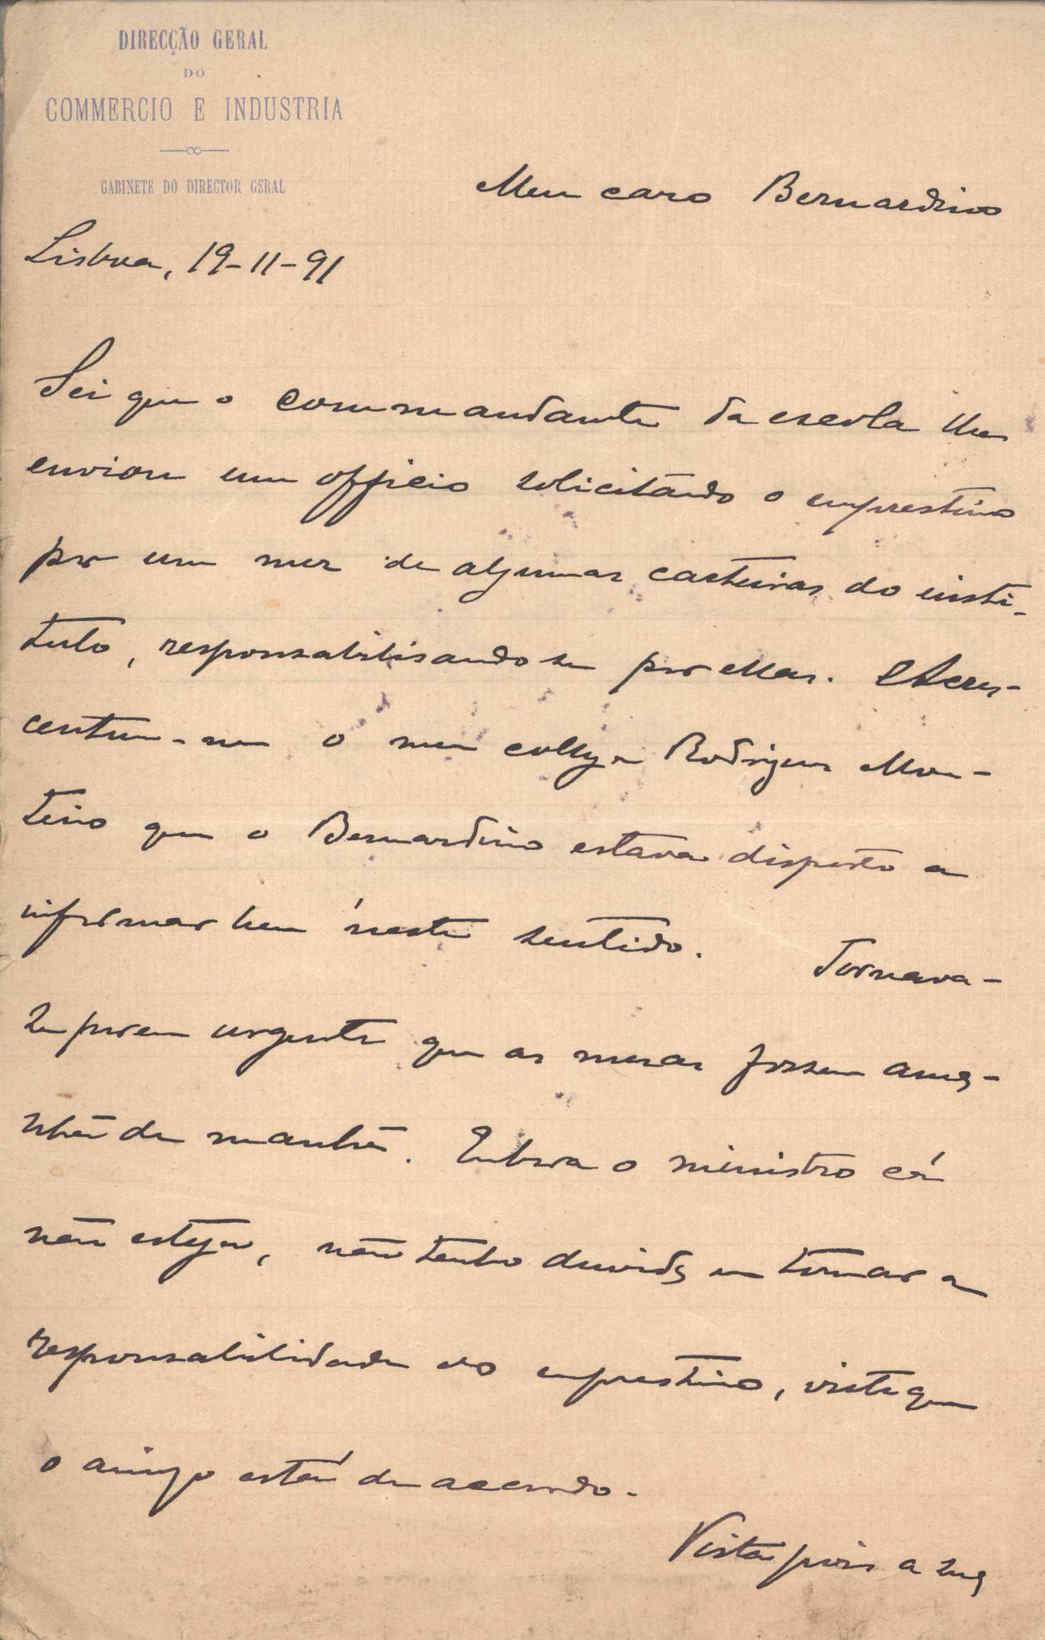 DIRECÇÃO GERAL
DO
COMMERCIO E INDUSTRIA
GABINETE DO DIRECTOR GERAL
Meu caro Bernardino
Lisboa, 19-11-91
Sei que o commandante da escola lhe
enviou um officio solicitando o emprestimo
por um mez de algumas carteiras do insti-
tuto, responsabilisando se por ellas. Acres-
centou-me o meu collega Rodrigues Mon-
teiro que o Bernardino estava disposto a
informar bem n'este sentido. Tornava-
se porem urgente que as mesas fossem ama-
nhã de manhã. Embora o ministro cá
não esteja, não tenho duvida em tomar a
responsabilidade do emprestimo, visto que
o amigo está de accordo.
Vista pois a sua